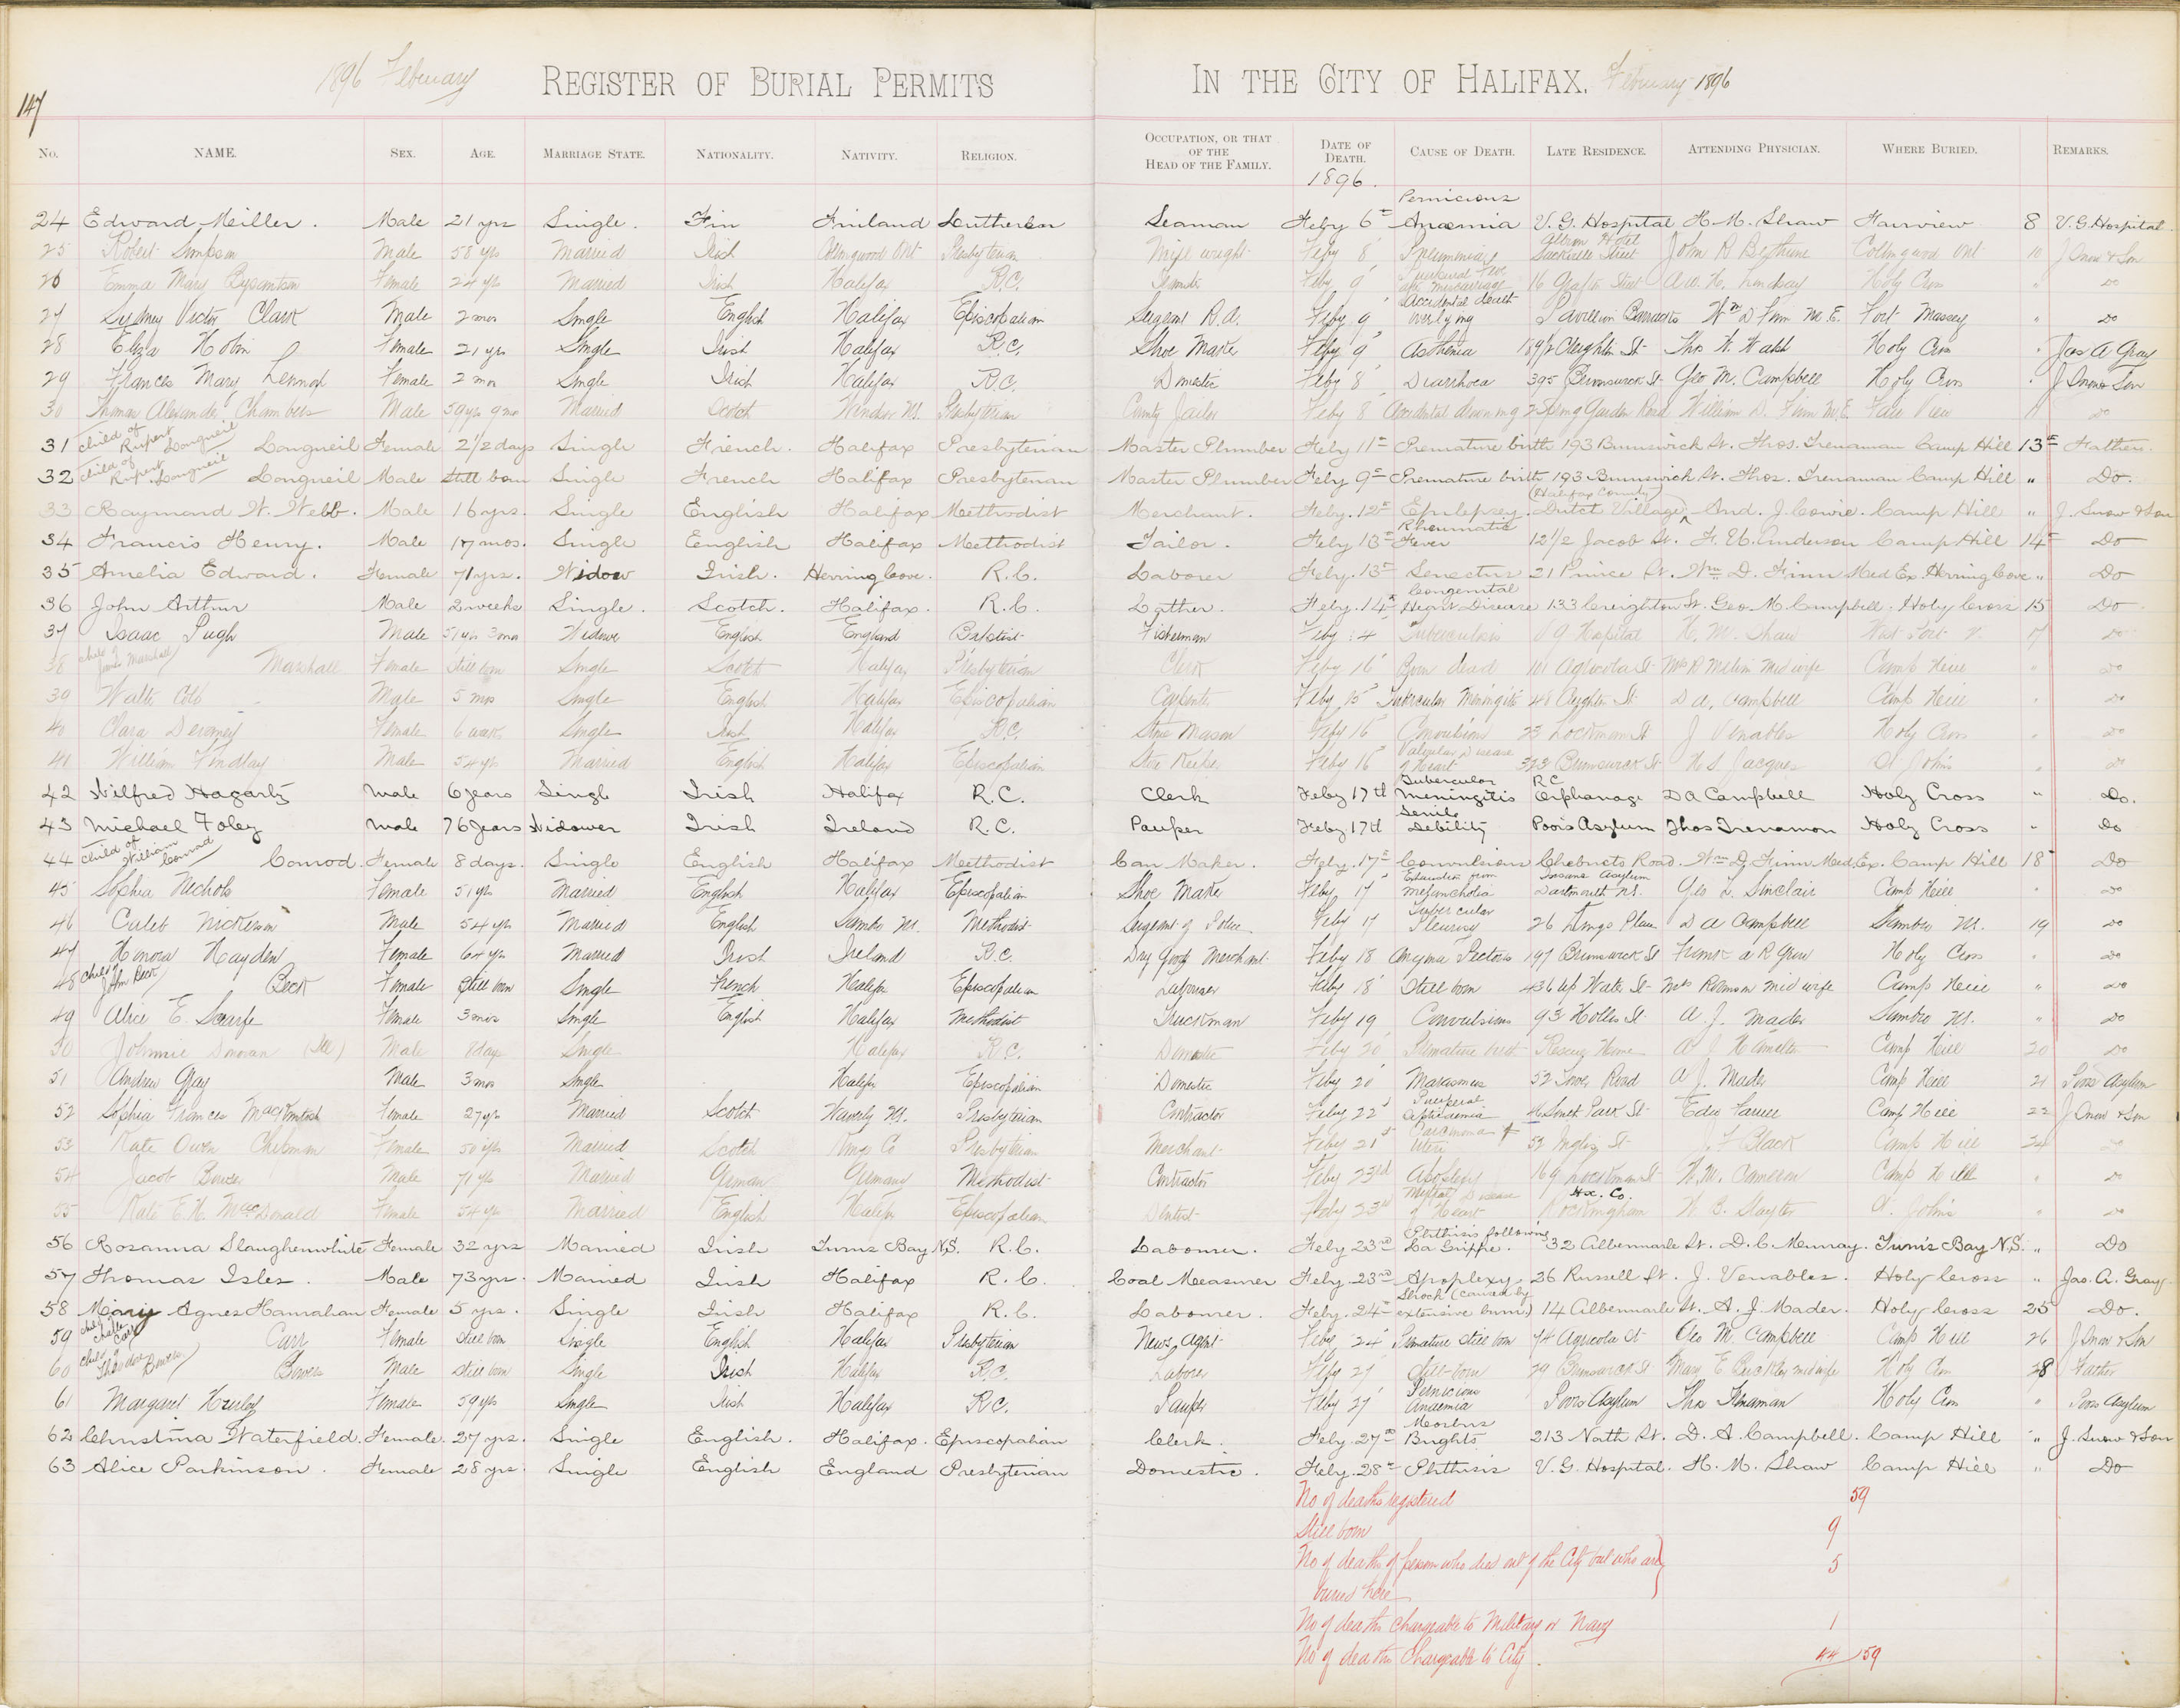 1896 February REGISTER OF BURIAL PERMITS IN THE CITY OF HALIFAX. February 1896
147
No. NAME. SEX. AGE. MARRIAGE STATE. NATIONALITY. NATIVITY. RELIGION. OCCUPATION, OR THAT OF THE HEAD OF THE FAMILY. DATE OF DEATH. CAUSE OF DEATH. LATE RESIDENCE. ATTENDING PHYSICIAN. WHERE BURIED. REMARKS.
1896.
24 Edward Miller. Male 21 yrs Single. Fin Finland Lutheran Seaman Feby 6th Pernicious Anæmia V. G. Hospital H. M. Shaw Fairview 8 V. G. Hospital
25 Robert Simpson Male 58 yrs Married Irish Collingwood Ont Presbyterian Mill wright Feby 8 Pneumonia Albion Hotel Sackville Street John R Bethune Collingwood Ont 10 J Snow & Son
26 Emma Mary Female 24 yrs Married Irish Halifax R.C. Feby 9 Puerperal Fever after miscarriage 16 Grafton Street A. W. H. Lindsay Holy Cross " Do
27 Sydney Victor Clark Male 2 mos Single English Halifax Episcopalian Sergent R.A. Feby 9 Accidental death overlying Pavillion Barracks Wm D Finn M.E. Fort Massey " Do
28 Eliza Female 21 yrs Single Irish Halifax R.C. Shoe Maker Feby 9 Asthenia 189½ Creighton St Thos W. Walsh Holy Cross " Jas A Gray
29 Frances Mary Lennox Female 2 mos Single Irish Halifax R.C. Domestic Feby 8 Diarrhoea 395 Brunswick St Geo M. Campbell Holy Cross " J Snow & Son
30 Thomas Alexander Chambers Male 59 yrs 9 mos Married Scotch Windsor NS. Presbyterian County Jailor Feby 8 Accidental drowning 2 Spring Garden Road William D. Finn M.E. Fair View 11 Do
31 child of Rupert Longueil Longueil Female 2½ days Single French. Halifax Presbyterian Master Plumber Feby 11th Premature birth 193 Brunswick St. Thos. Trenaman Camp Hill 13th Father.
32 child of Rupt. Longueil Longueil Male Still born Single French Halifax Presbyterian Master Plumber Feby 9th Premature birth 193 Brunswick St. Thos. Trenaman Camp Hill " Do.
33 Raymond W. Webb. Male 16 yrs. Single English Halifax Methodist Merchant. Feby. 12th Epilepsey. Dutch Village (Halifax County) And. J. Cowie. Camp Hill " J. Snow & Son
34 Francis Henry. Male 17 mos. Single English Halifax Methodist Tailor. Feby 13th Rheumatic Fever 12½ Jacob St. F. U. Anderson Camp Hill 14th Do
35 Amelia Edward. Female 71 yrs. Widow Irish. Herring Cove. R.C. Laborer Feby. 13th Senectus 21 Prince St. Wm D. Finn Med Ex. Herring Cove " Do
36 John Arthur Male 2 weeks Single. Scotch. Halifax. R.C. Lather. Feby. 14th Congenital Heart Disease 133 Creighton St. Geo. M. Campbell. Holy Cross 15 Do
37 Isaac Pugh Male 51 yrs 3 mos Widower English England Baptist Fisherman Feby 14 Tuberculosis V G Hospital H. M. Shaw 17 Do
38 child of James Marshall Marshall Female Still born Single Scotch Halifax Presbyterian Clerk Feby 16 Born dead 101 Agricola St Midwife Camp Hill " Do
39 Walter Cobb Male 5 mos Single English Halifax Episcopalian Carpenter Feby 15 Tubercular Meningitis 48 Creighton St D A. Campbell Camp Hill " Do
40 Clara Female 6 weeks Single Irish Halifax R.C. Stone Mason Feby 16 Convulsions 23 Lockman St J Venables Holy Cross " Do
41 William Findlay Male 54 yrs Married English Halifax Episcopalian Store Keeper Feby 16 Valvular Disease of Heart 323 Brunswick St H S Jacques St John's " Do
42 Wilfred Hagarty Male 6 years Single Irish Halifax R.C. Clerk Feby 17th Tubercular Meningitis R C Orphanage D A Campbell Holy Cross " Do.
43 Michael Foley Male 76 years Widower Irish Ireland R.C. Pauper Feby 17th Senile Debility Poors Asylum Thos Trenamon Holy Cross " Do
44 child of William Conrad Conrod. Female 8 days. Single English Halifax Methodist Car Maker. Feby. 17th Convulsions Chebucto Road. Wm D. Finn Med. Ex. Camp Hill 18 Do
45 Sophia Nichols Female 51 yrs Married English Halifax Episcopalian Shoe Maker Feby 17 Exhaustion from melancholia Insane Asylum Dartmouth NS. Geo L. Sinclair Camp Hill " Do
46 Culeb Nickerson Male 54 yrs Married English Sambro NS. Methodist Sergeant of Police Feby 17 Tubercular Pleurisy 26 Place D A Campbell Sambro NS. 19 Do
47 Honora Hayden Female 64 yrs Married Irish Ireland R.C. Dry Goods Merchant Feby 18 Angina Pectoris 197 Brunswick St Holy Cross " Do
48 child John Beck Beck Female Still born Single French Halifax Episcopalian Labourer Feby 18 Still born 436 Up Water St Mrs Robinson midwife Camp Hill " Do
49 Alice E. Scarfe Female 3 mos Single English Halifax Methodist Truckman Feby 19 Convulsions 93 Hollis St A. J. Mader Sambro NS. " Do
50 Johnnie Donovan Male days Single Halifax R.C. Domestic Feby 20 Premature birth Rescue Home Camp Hill 20 Do
51 Andrew Gray Male 3 mos Single Halifax Episcopalian Domestic Feby 20 Marasmus 52 Tower Road A J. Mader Camp Hill 21 Poors Asylum
52 Sophia Frances MacKintosh Female 27 yrs Married Scotch Waverly NS. Presbyterian Contractor Feby 22 Puerperal Septicaemia South Park St Edw Farrell Camp Hill 22 J Snow & Son
53 Kate Owen Chipman Female 50 yrs Married Scotch Kings Co Presbyterian Merchant Feby 21st Carcinoma of Uteri 52 Inglis St J. F. Black Camp Hill 24 Do
54 Jacob Bowser Male 71 yrs Married German Germany Methodist Contractor Feby 23rd Apoplexy 169 Lockman St W. M. Cameron Camp Hill " Do
55 Kate E. H. MacDonald Female 54 yrs Married English Halifax Episcopalian Dentist Feby 23rd Mitral Disease of Heart Rockingham Hx. Co. W. B. Slayter St. John's " Do
56 Rosanna Slaughenwhite Female 32 yrs Married Irish Turns Bay N.S. R.C. Labourer. Feby 23rd Phthisis following La Grippe. 32 Albermarle St. D. C. Murray. Turn's Bay N.S. " Do
57 Thomas Isles. Male 73 yrs. Married Irish Halifax R.C. Coal Measurer Feby. 23rd Apoplexy. 26 Russell St. J. Venables. Holy Cross " Jas. A. Gray
58 Mary Agnes Hanrahan Female 5 yrs. Single Irish Halifax R.C. Labourer. Feby. 24th Shock (caused by extensive burns) 14 Albermarle St. A. J. Mader. Holy Cross 25 Do.
59 child Carr Carr Female Still born Single English Halifax Presbyterian News Agent Feby 24 Premature Still born 74 Agricola St Geo M. Campbell Camp Hill 26 J Snow & Son
60 child Theodore Bowes Bowes Male Still born Single Irish Halifax R.C. Laborer Feby 27 Still-born 29 Brunswick St Mary E Buckley midwife Holy Cross 28 Father
61 Margaret Hurley Female 59 yrs Single Irish Halifax R.C. Pauper Feby 27 Pernicious Anaemia Poors Asylum Thos Trenaman Holy Cross " Poors Asylum
62 Christina Waterfield. Female. 27 yrs. Single English. Halifax. Episcopalian Clerk. Feby. 27th Morbus Brights 213 North St. D. A. Campbell. Camp Hill " J. Snow & Son
63 Alice Parkinson. Female 28 yrs. Single English England Presbyterian Domestic. Feby. 28th Phthisis V. G. Hospital. H. M. Shaw Camp Hill " Do
No of deaths registered 59
Still born 9
No of deaths of persons who died out of the City but who are 5
buried here
No of deaths chargeable to Military or Navy 1
No of deaths Chargeable to City. 44 59